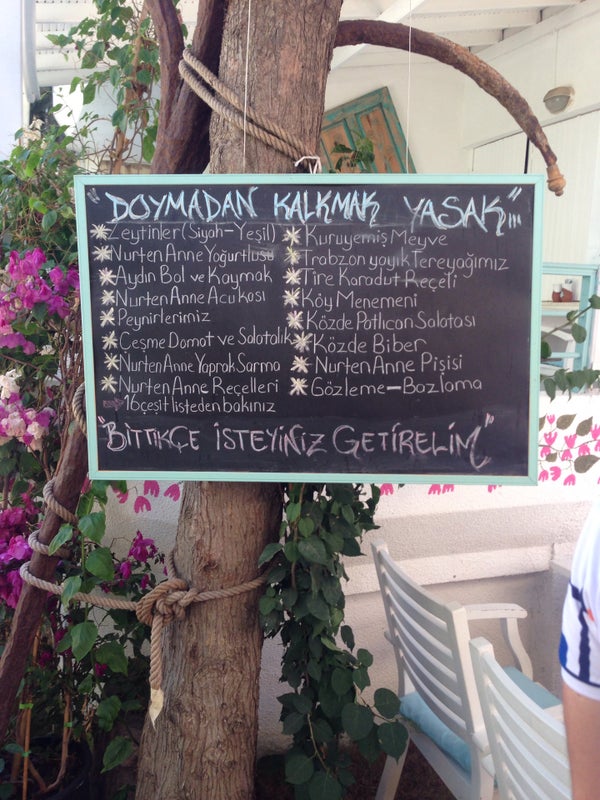 "DOYMADAN KALKMAK YASAK,,,"
Zeytinler (Siyah-Yeşil)
Nurten Anne Yoğurtlusu
Aydın Bal ve Kaymak
Nurten Anne Acukası
Peynirlerimiz
Çeşme Domat ve Salatalık
Nurten Anne Yaprak Sarma
Nurten Anne Reçelleri
16 çeşit listeden bakınız
Kuruyemiş Meyve
Trabzon yayık Tereyağımız
Tire Karadut Reçeli
Köy Menemeni
Közde Patlıcan Salatası
Közde Biber
Nurten Anne Pişisi
Gözleme-Bazlama
"BİTTİKÇE İSTEYİNİZ GETİRELİM"